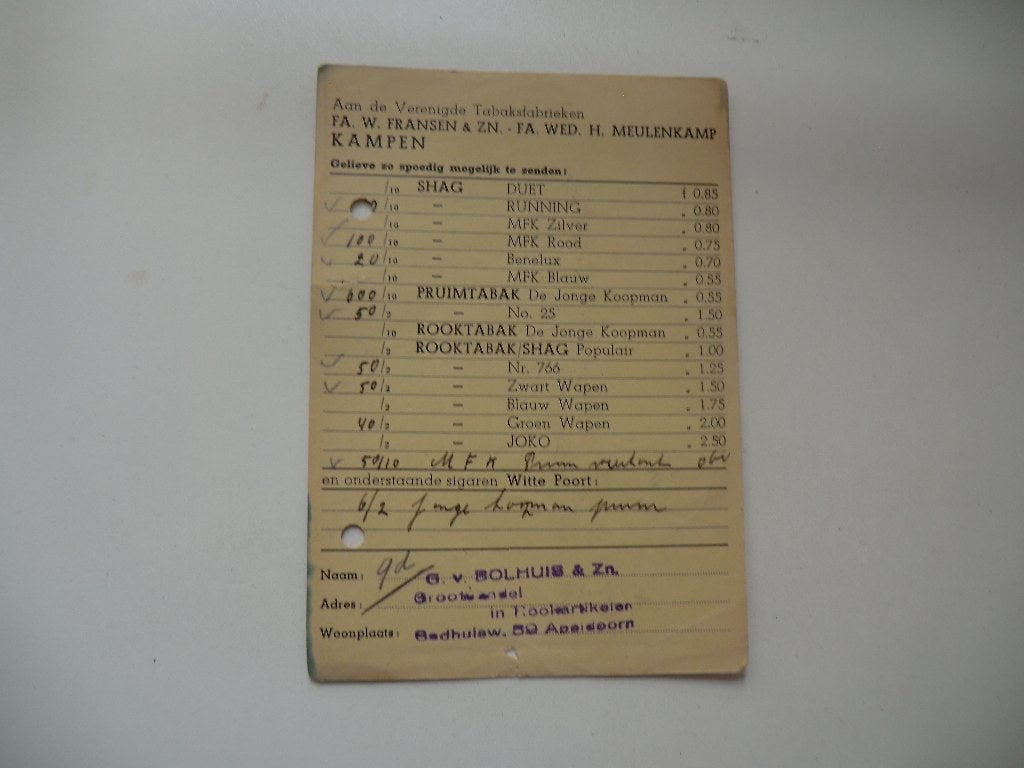 Aan de Verenigde Tabaksfabrieken
FA. W. FRANSEN & ZN. - FA. WED. H. MEULENKAMP
KAMPEN
Gelieve zo spoedig mogelijk te zenden:
/10 SHAG DUET f 0.85
/10 — RUNNING „ 0.80
/10 — MFK Zilver „ 0.80
100/10 — MFK Rood „ 0.75
20/10 — Benelux „ 0.70
/10 — MFK Blauw „ 0.55
600/10 PRUIMTABAK De Jonge Koopman „ 0.55
50/2 — No. 25 „ 1.50
/10 ROOKTABAK De Jonge Koopman „ 0.55
/2 ROOKTABAK/SHAG Populair „ 1.00
50/2 — Nr. 766 „ 1.25
50/2 — Zwart Wapen „ 1.50
/2 — Blauw Wapen „ 1.75
40/2 — Groen Wapen „ 2.00
/2 — JOKO „ 2.50
50/10 M F K Pruim
en onderstaande sigaren Witte Poort:
6/2 Jonge Koopman pruim
Naam: G. v. BOLHUIS & Zn.
Adres: Groothandel
in Rookartikelen
Woonplaats: Badhuisw. 59 Apeldoorn